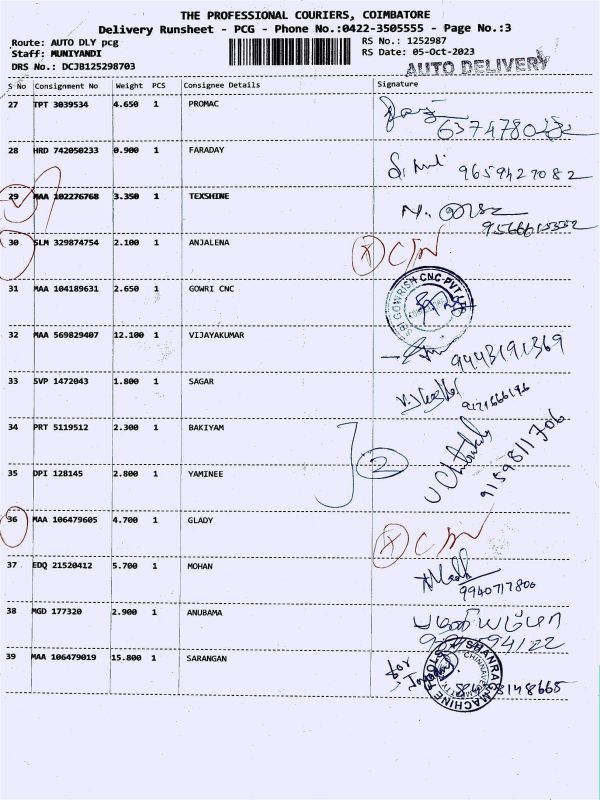 THE PROFESSIONAL COURIERS, COIMBATORE
Delivery Runsheet - PCG - Phone No.:0422-3505555 - Page No.:3
Route: AUTO DLY pcg
RS No.: 1252987
Staff: MUNIYANDI
RS Date: 05-Oct-2023
DRS No.: DCJB125298703
AUTO DELIVERY
S No Consignment No Weight PCS Consignee Details Signature
27 TPT 3039534 4.650 1 PROMAC
28 HRD 742050233 0.900 1 FARADAY
9659427082
29 MAA 102276768 3.350 1 TEXSHINE
30 SLM 329874754 2.100 1 ANJALENA
31 MAA 104189631 2.650 1 GOWRI CNC
SRI GOWRISH CNC PVT LTD
32 MAA 569829407 12.100 1 VIJAYAKUMAR
9443191369
33 SVP 1472043 1.800 1 SAGAR
34 PRT 5119512 2.300 1 BAKIYAM
2
9159811706
35 DPI 128145 2.800 1 YAMINEE
36 MAA 106479605 4.700 1 GLADY
37 EDQ 21520412 5.700 1 MOHAN
9940717800
38 MGD 177320 2.900 1 ANUBAMA
39 MAA 106479019 15.800 1 SARANGAN
for
SHANRAG MACHINE TOOLS